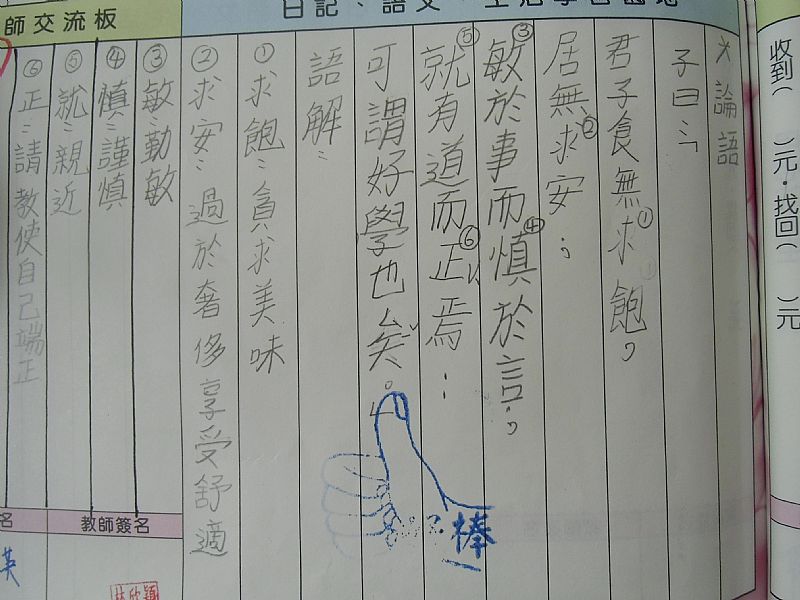 師交流板
＊論語
子曰：「
君子食無求①飽，
居無求②安；
③敏於事而④慎於言；
⑤就有道而⑥正焉：
可謂好學也矣。」
語解：
①求飽：貪求美味
②求安：過於奢侈享受舒適
③敏：勤敏
④慎：謹慎
⑤就：親近
⑥正：請教使自己端正
棒
教師簽名
名
英
收到( )元．找回( )元